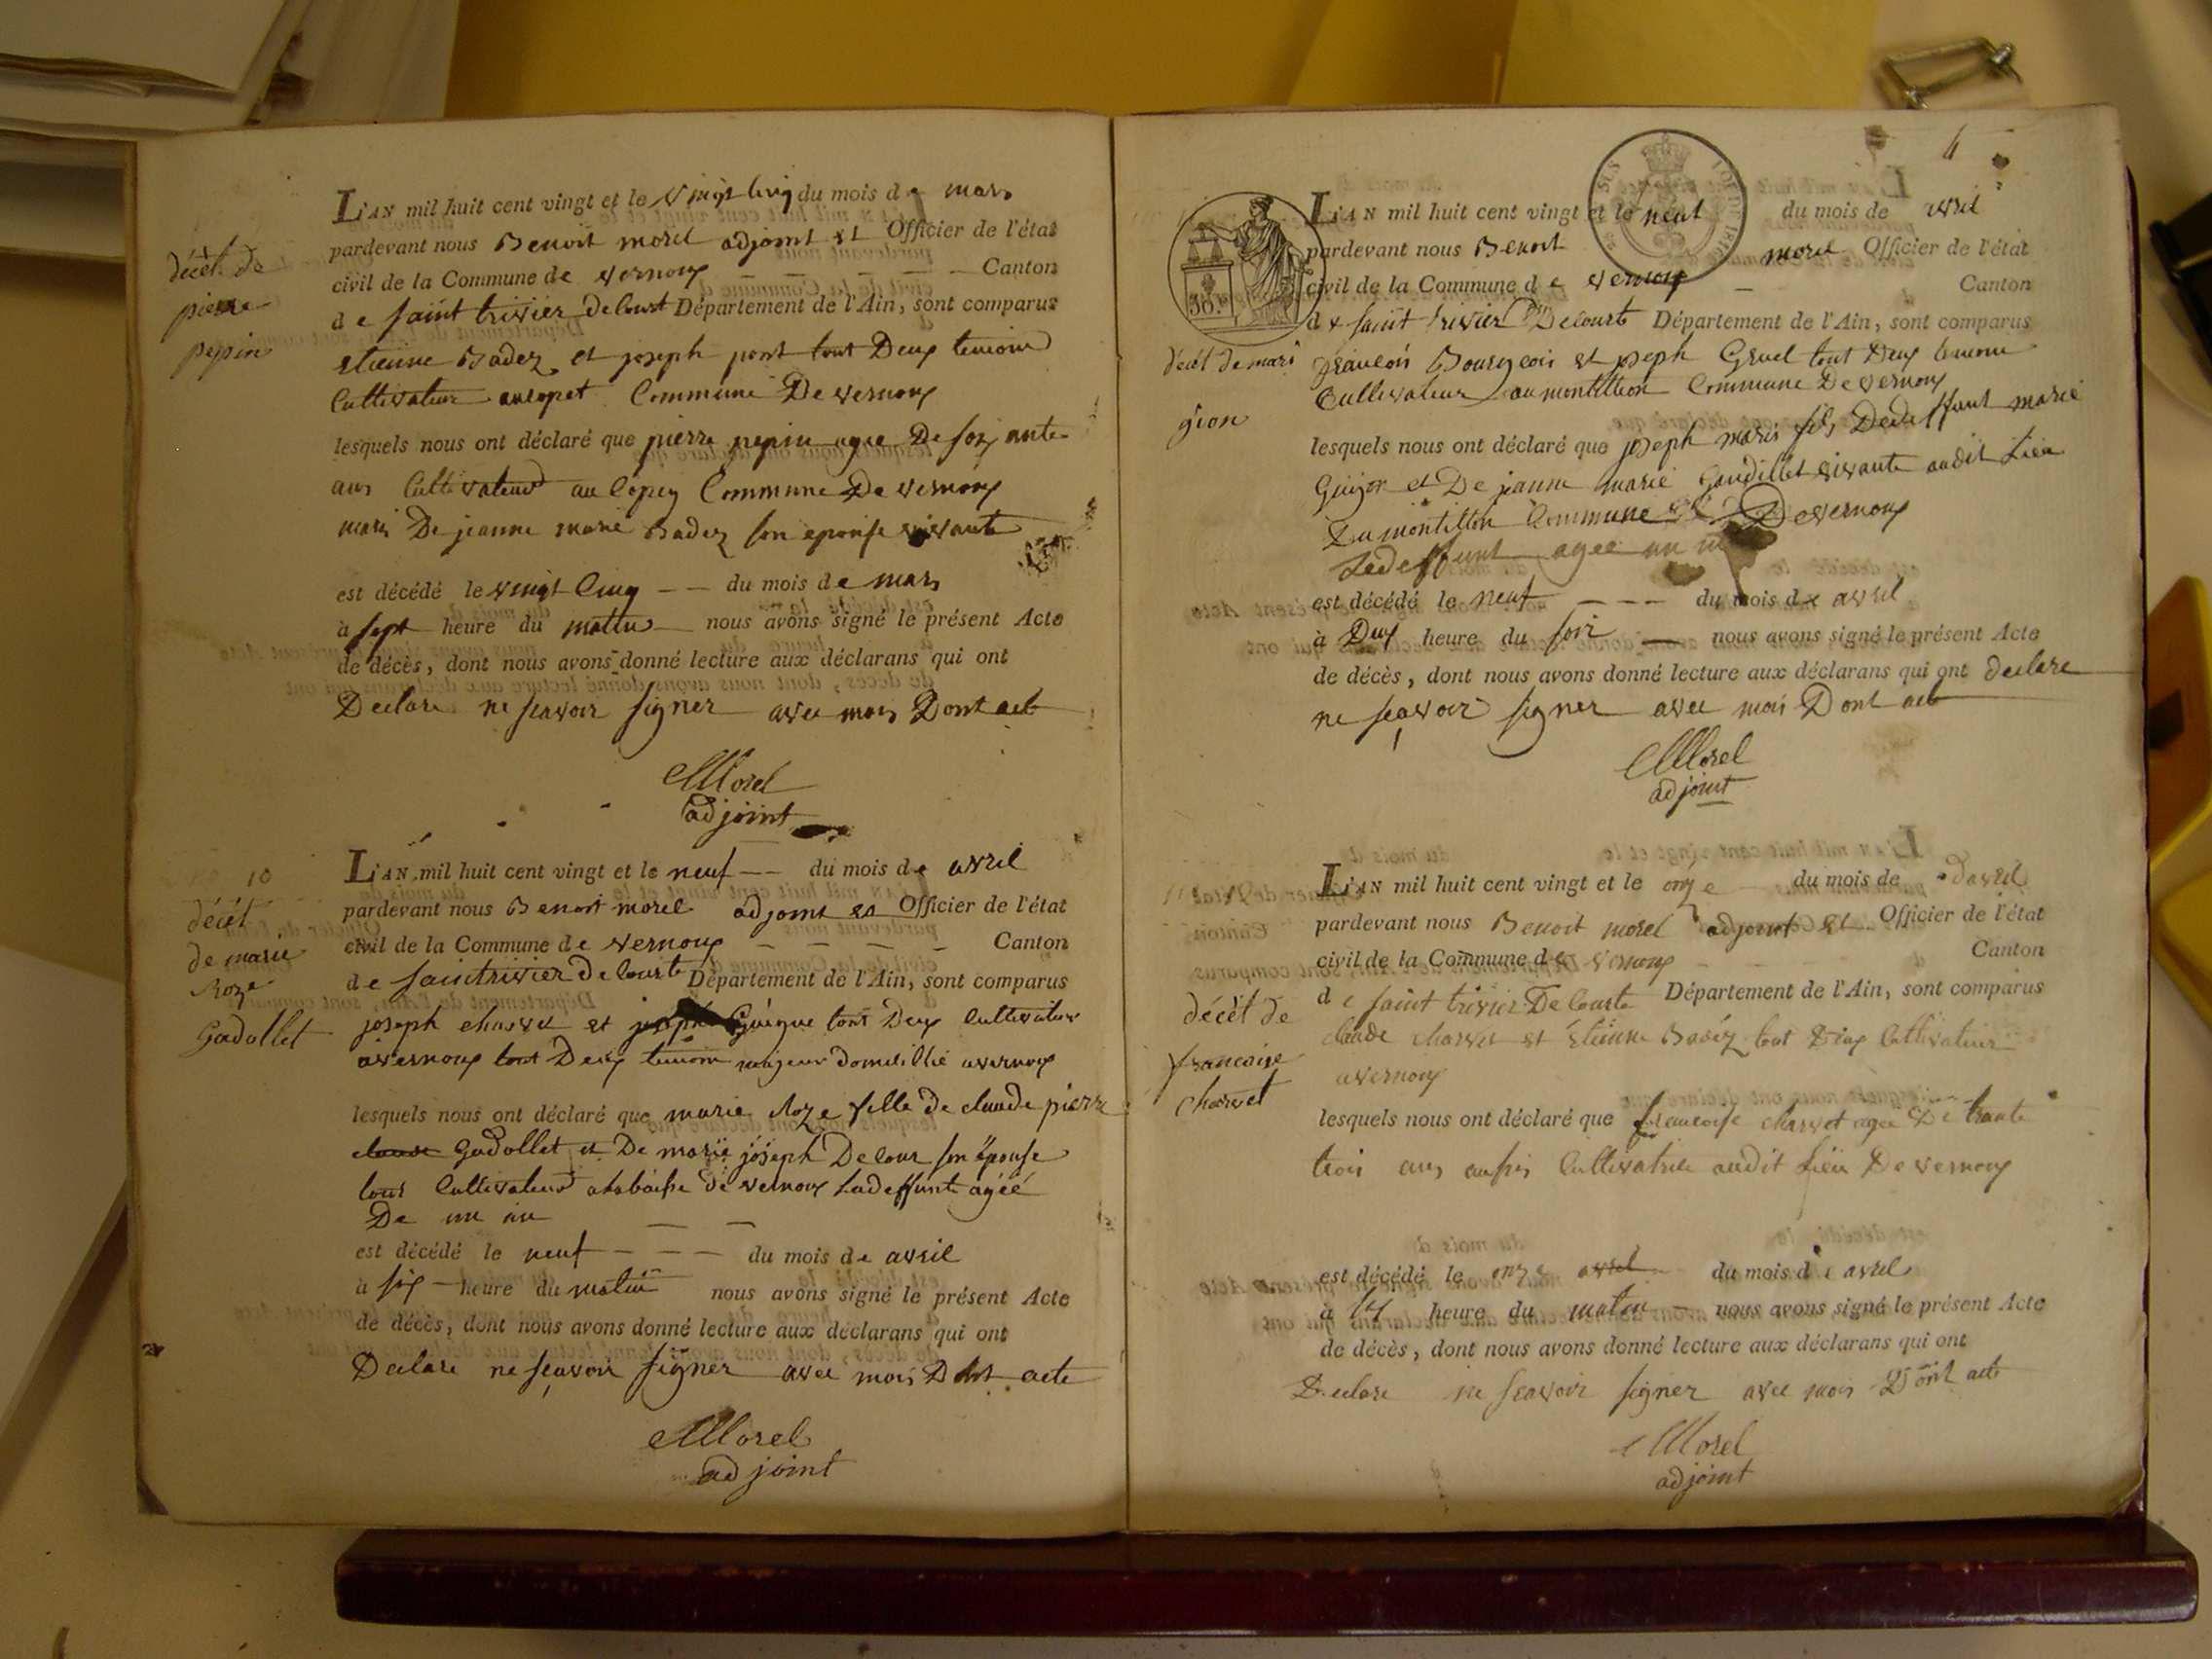 décèt de
pierre
pepin
L'AN mil huit cent vingt et le vingt cinq du mois de mars
pardevant nous Benoit morel adjoint et Officier de l'état
civil de la Commune de vernoux Canton
de saint trivier decourt Département de l'Ain, sont comparus
etienne Badez et joseph pont tout Deux temoins
Cultivateur Commune De vernoux
lesquels nous ont déclaré que pierre pepin agee De soixante
ans Cultivateur au Commune De vernoux
mari De jeanne marie Badez son epouse vivante
est décédé le vingt Cinq du mois de mars
à sept heure du mattin nous avons signé le présent Acte
de décès, dont nous avons donné lecture aux déclarans qui ont
Declare ne scavoir signer avec mois Dont acte
Morel
adjoint
10
décèt
de marie
Roze
Gadollet
L'AN mil huit cent vingt et le neuf du mois de avril
pardevant nous Benoit morel adjoint et Officier de l'état
civil de la Commune de vernoux Canton
de saintrivier de courte Département de l'Ain, sont comparus
joseph charvet et joseph Guigue tout Deux Cultivateur
avernoux tout Deux temoin majeur domicillié avernoux
lesquels nous ont déclaré que marie Roze fille de claude pierre
claude Gadollet et De marie joseph Decour son épouse
tous Cultivateur de vernoux Ladeffunte agéé
De un an
est décédé le neuf du mois de avril
à six heure du matin nous avons signé le présent Acte
de décès, dont nous avons donné lecture aux déclarans qui ont
Declare ne scavoir signer avec mois Dont acte
Morel
adjoint
4
30
L'AN mil huit cent vingt et le neuf du mois de avril
pardevant nous Benoit morel Officier de l'état
civil de la Commune de vernoux Canton
de saint trivier Decourte Département de l'Ain, sont comparus
décèt de mari
gion
francois Bourgeois et joseph Gruel tout Deux temoin
Cultivateur au montillion Commune De vernoux
lesquels nous ont déclaré que joseph maris fils Dedeffunt marie
Guigon et De jeanne marie Gaudillet vivante audit Lieu
Du montillon Commune De vernoux
Ledeffunt agee un
est décédé le neuf du mois de avril
à Deux heure du soir nous avons signé le présent Acte
de décès, dont nous avons donné lecture aux déclarans qui ont declare
ne scavoir signer avec mois Dont acte
Morel
adjoint
décèt de
francoise
charvet
L'AN mil huit cent vingt et le onze du mois de davril
pardevant nous Benoit morel adjoint et Officier de l'état
civil de la Commune de vernoux Canton
de saint trivier De Courte Département de l'Ain, sont comparus
claude charvet et étienne Badez tout Deux Cultivateur
avernoux
lesquels nous ont déclaré que francoise charvet agee De trante
trois ans Cultivatrice audit Lieu De vernoux
est décédé le onze avril du mois de avril
à heure du matin nous avons signé le présent Acte
de décès, dont nous avons donné lecture aux déclarans qui ont
Declare ne scavoir signer avec mois Dont acte
Morel
adjoint